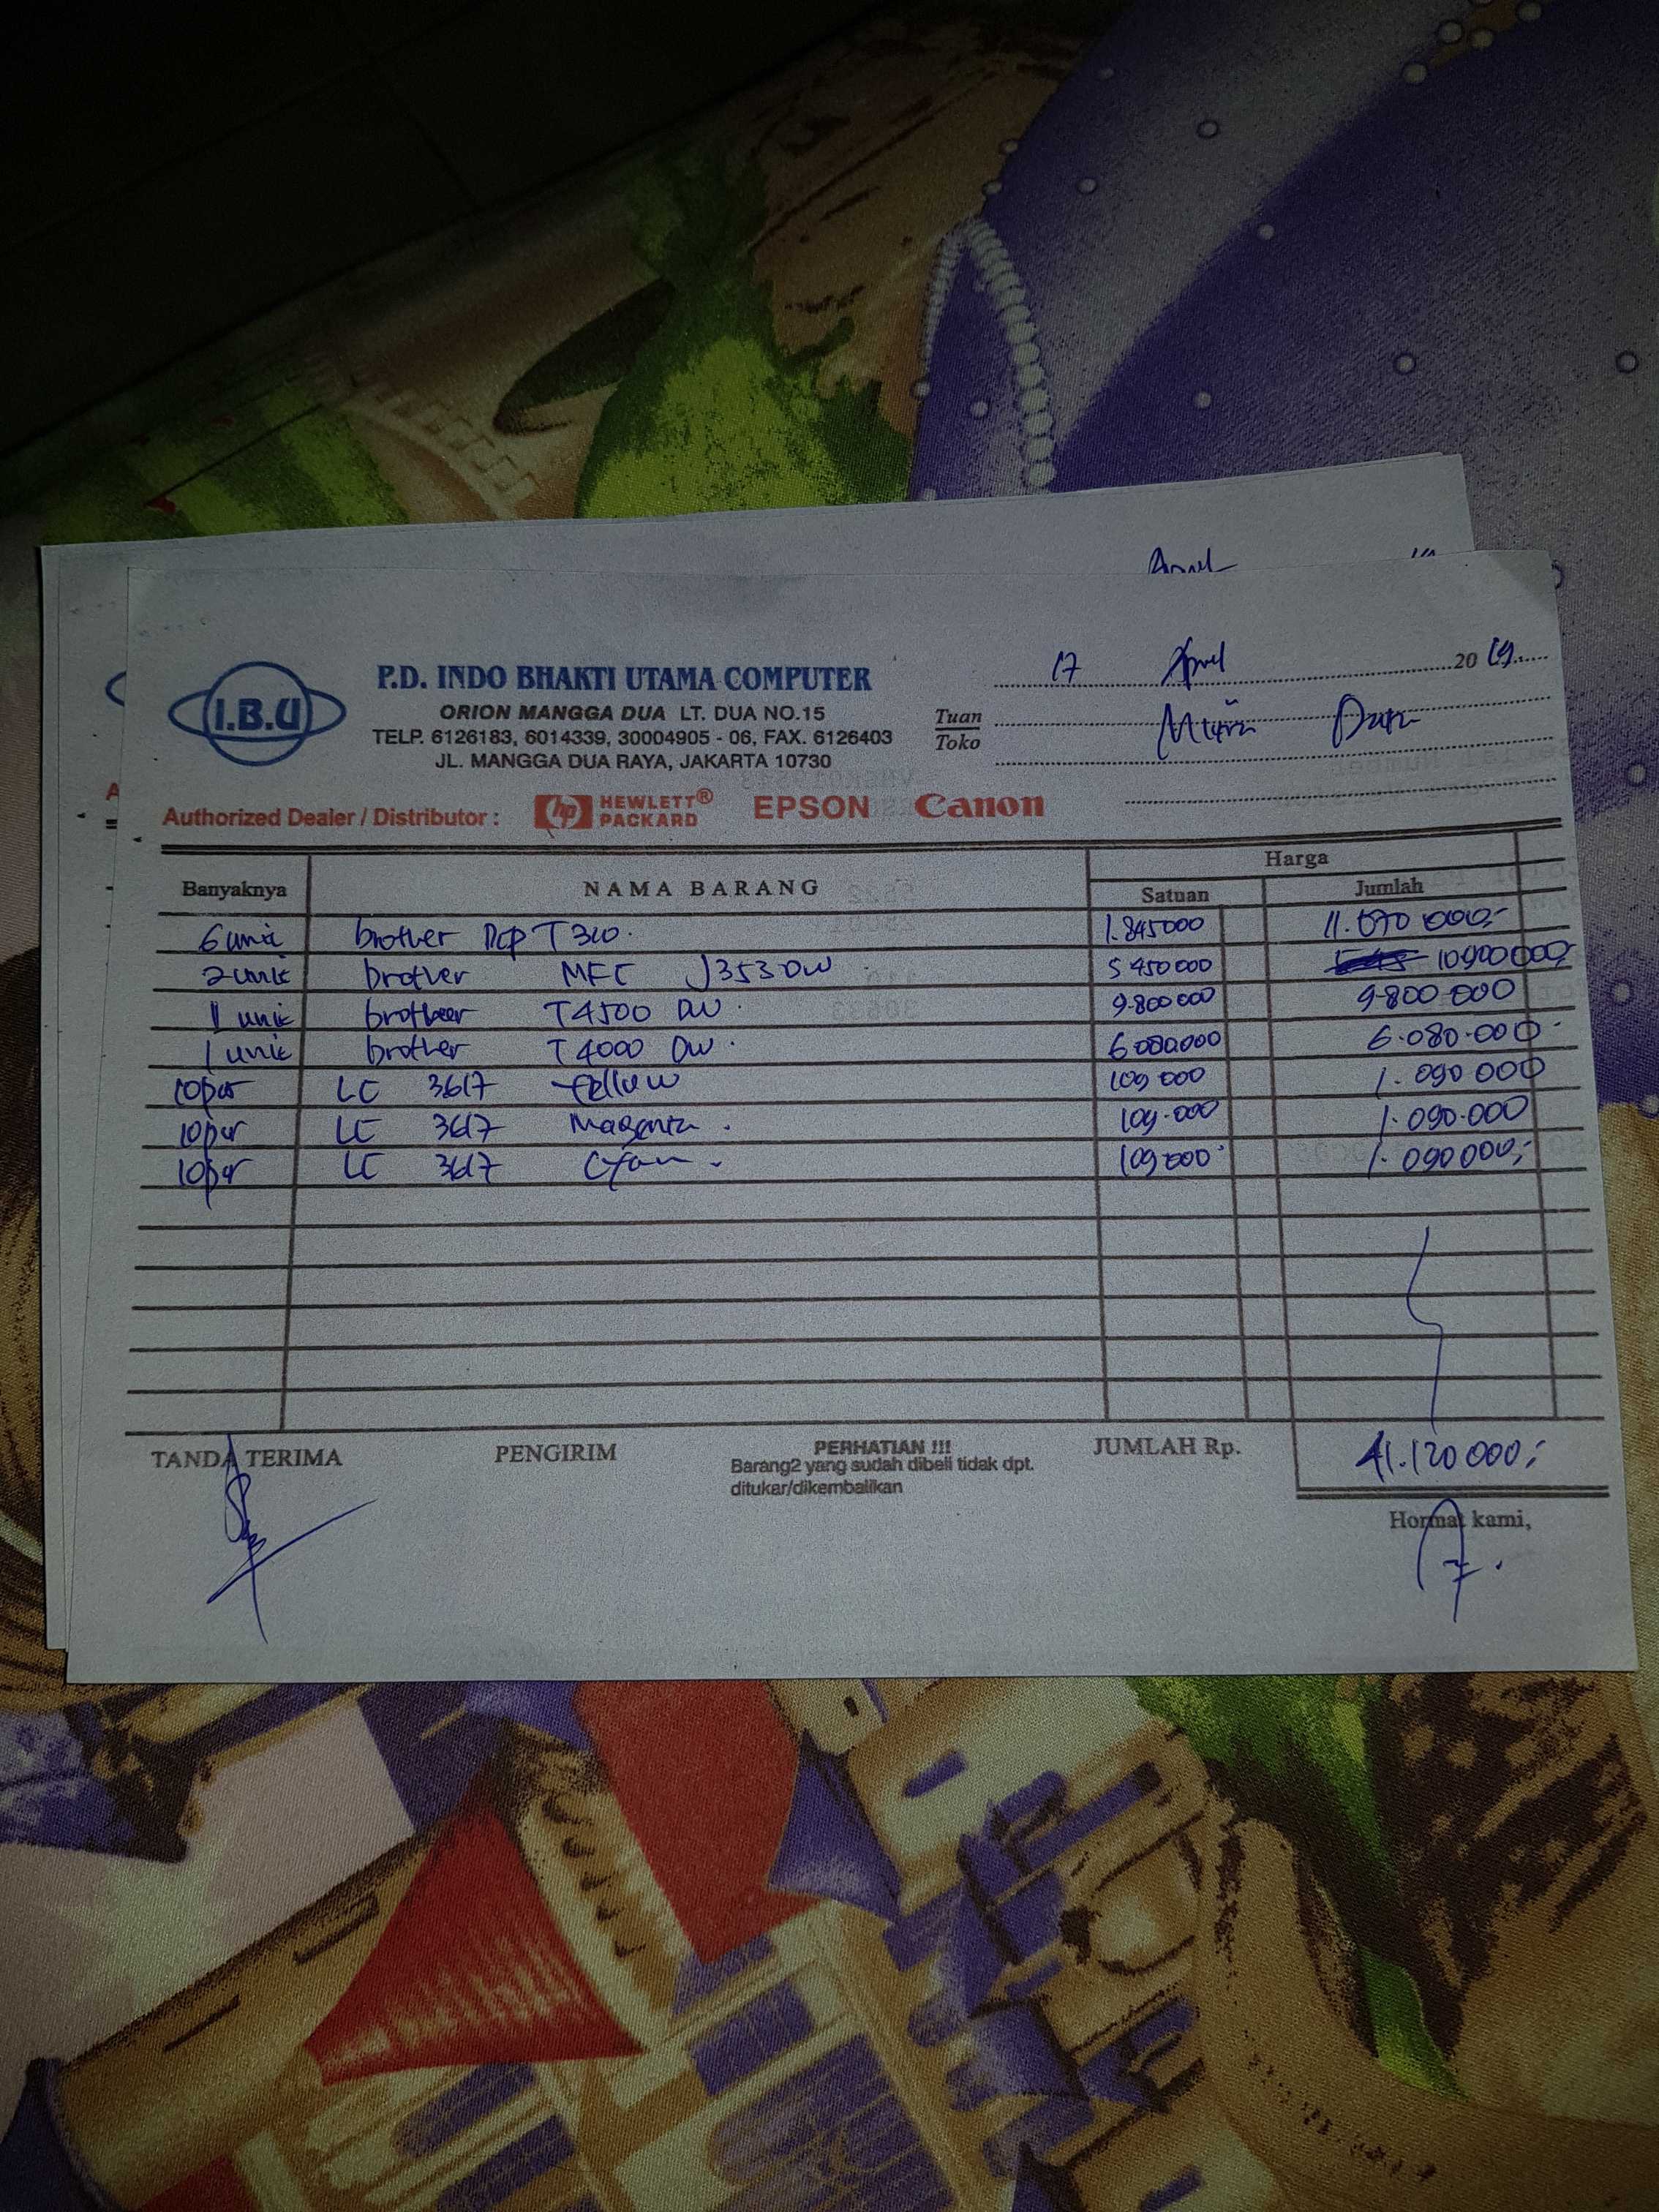 April
I.B.U
P.D. INDO BHAKTI UTAMA COMPUTER
ORION MANGGA DUA LT. DUA NO.15
TELP. 6126183, 6014339, 30004905 - 06, FAX. 6126403
JL. MANGGA DUA RAYA, JAKARTA 10730
17 April 2019
Tuan
Toko
Authorized Dealer / Distributor : hp HEWLETT® PACKARD EPSON Canon
Banyaknya NAMA BARANG Harga
Satuan Jumlah
6 unit brother Dcp T310. 1.845000 11.070 000,-
2 unit brother MFC J3530DW 5 450 000 10900 000,-
1 unit brother T4500 DW. 9.800 000 9.800 000
1 unit brother T4000 DW. 6.080.000 6.080.000.
10 pcs LC 3617 Yellow 109 000 1.090 000
10 pcs LC 3617 Magenta. 109.000 1.090.000
10 pcs LC 3617 Cyan. 109 000 1.090 000,-
TANDA TERIMA PENGIRIM PERHATIAN !!! JUMLAH Rp. 41.120 000,-
Barang2 yang sudah dibeli tidak dpt.
ditukar/dikembalikan
Hormat kami,